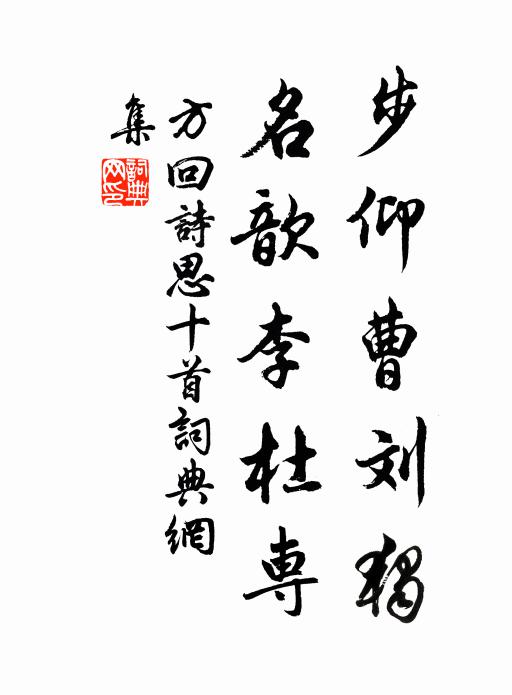 步仰曹刘獨
名歆李杜専
方回詩思十首詞典網
集
詞典网印